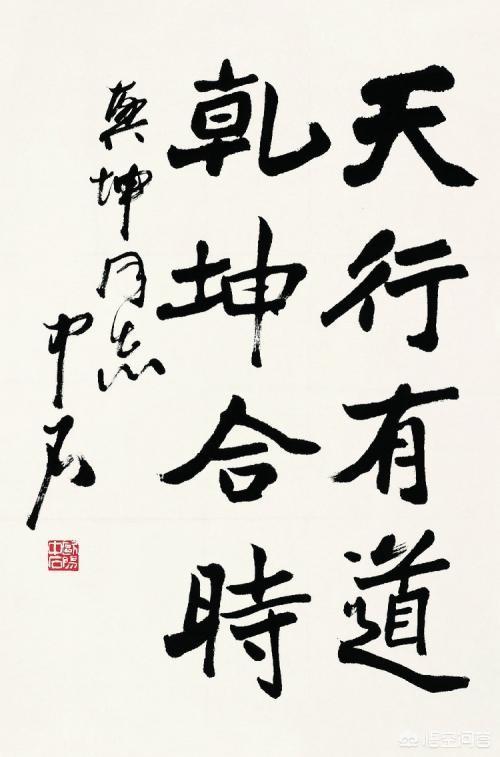 天行有道
乾坤合時
興坤同志
中石
歐陽中石
悟空问答